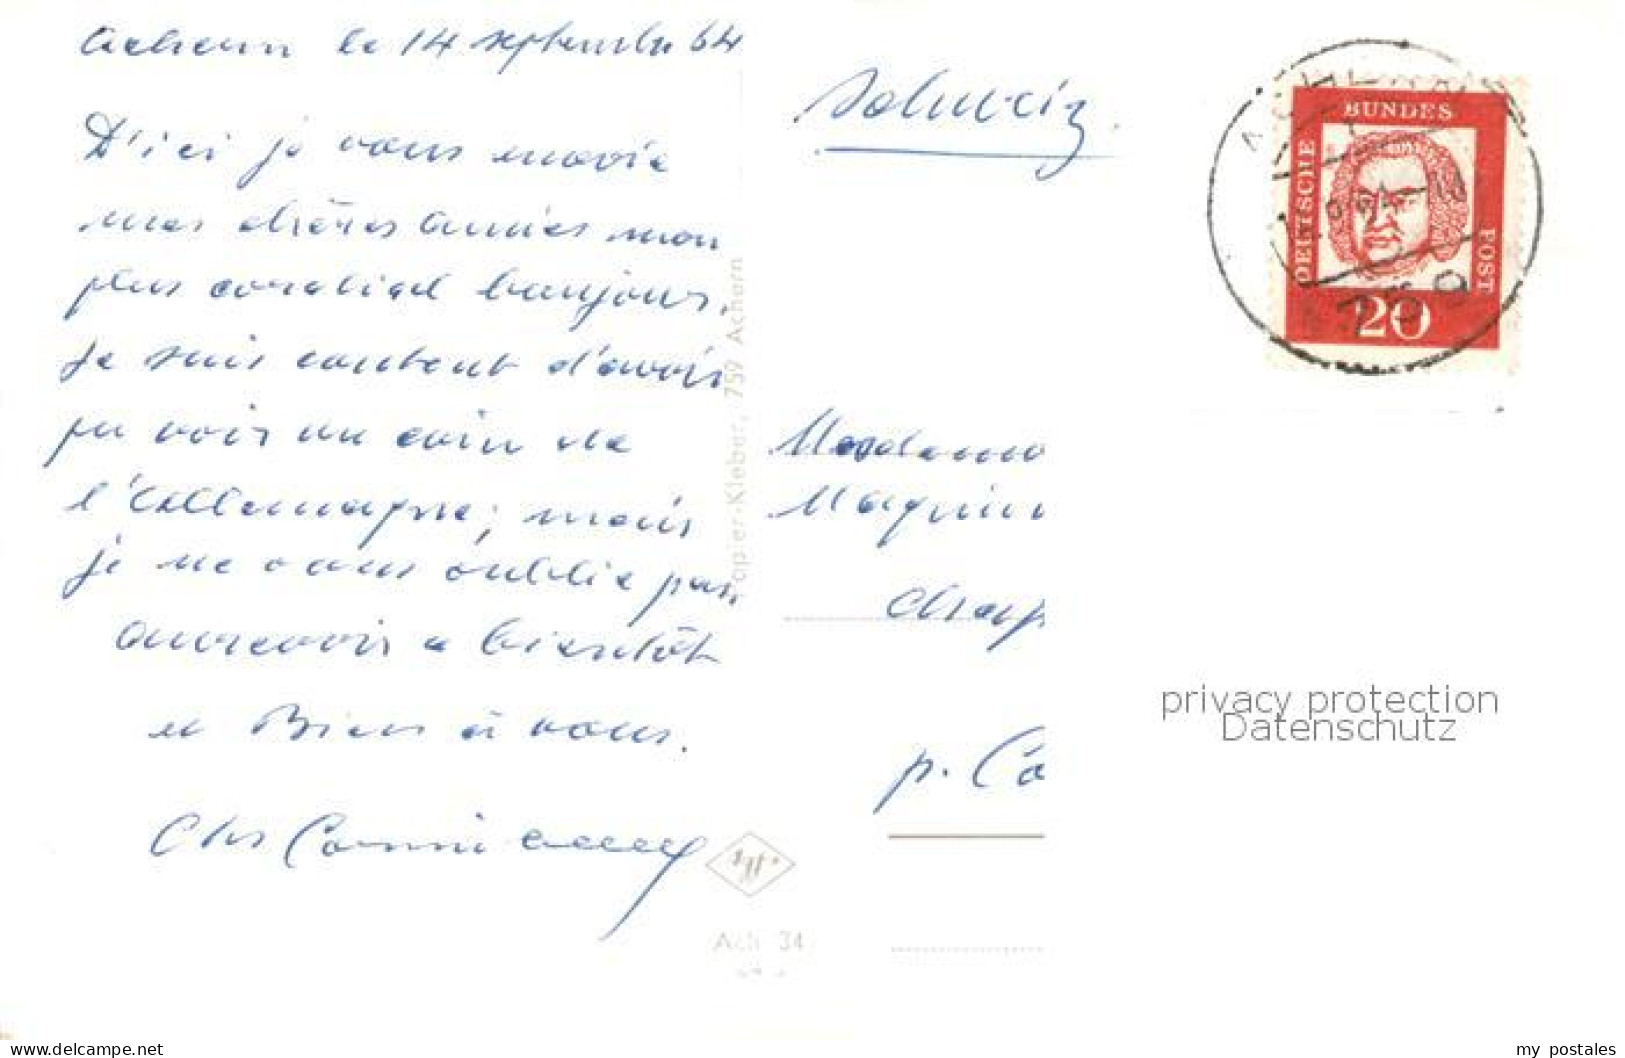 Achern le 14 septembre 64
D'ici je vous envoie
mes chères amies mon
plus cordial bonjour.
Je suis content d'avoir
pu voir un coin de
l'Allemagne; mais
je ne vous oublie pas
aurevoir a bientôt
et Bien à vous.
Chs
Papier-Kleber, 759 Achern
Ach 34
Schweiz.
Madame
p. Co
DEUTSCHE BUNDES POST
20
ACHERN
759
privacy protection
Datenschutz
delcampe.net
my_postales